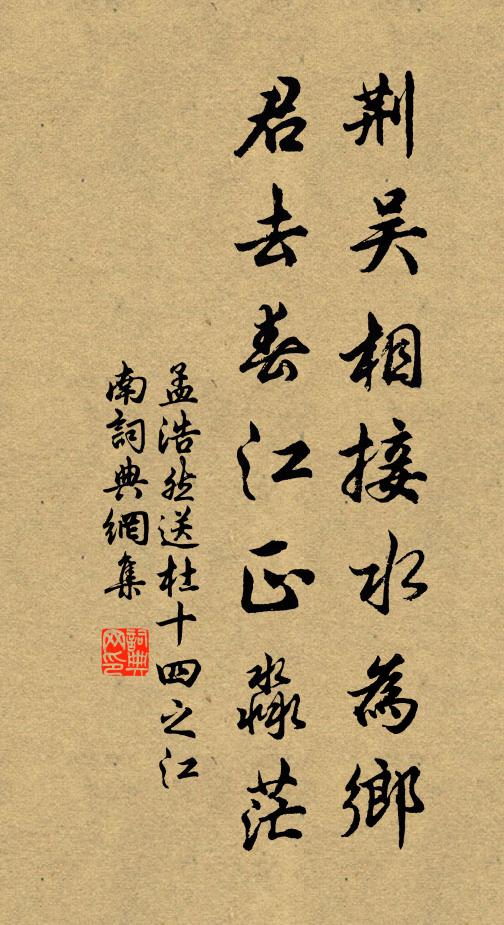 荆吴相接水為鄉
君去春江正淼茫
孟浩然送杜十四之江
南詞典網集
詞典
网印